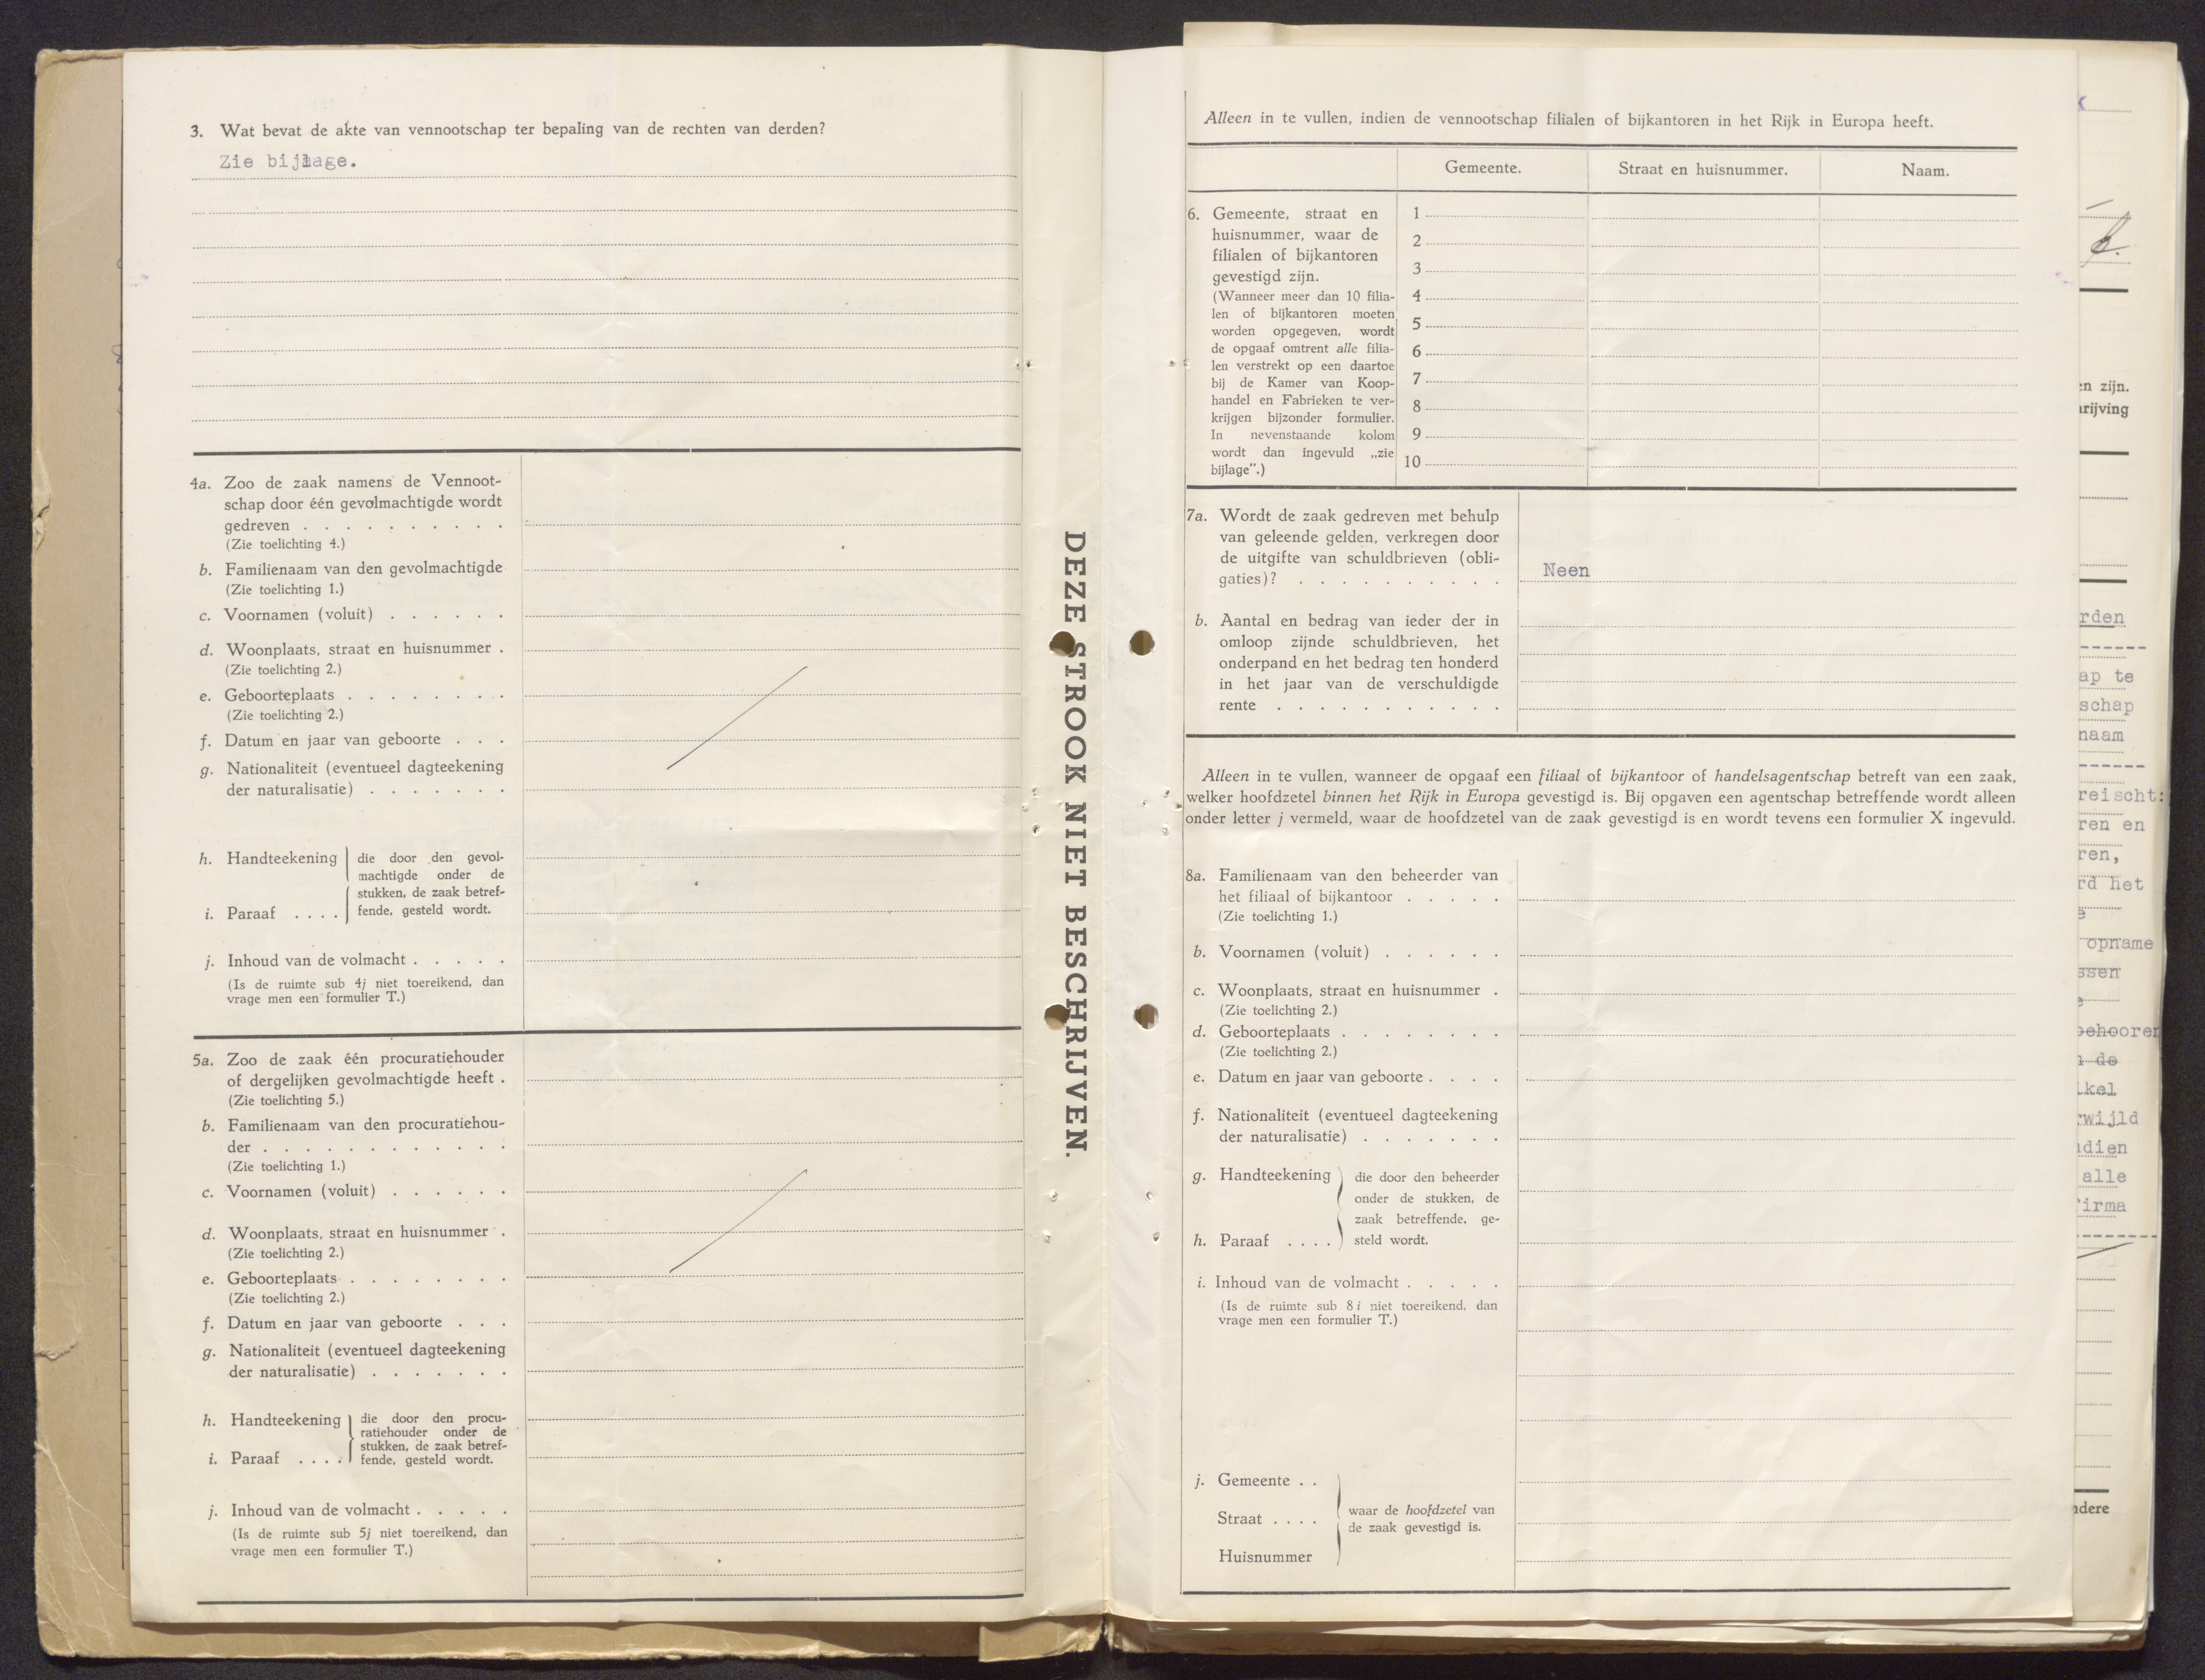 3. Wat bevat de akte van vennootschap ter bepaling van de rechten van derden?
Zie bijlage.
4a. Zoo de zaak namens de Vennoot-
schap door één gevolmachtigde wordt
gedreven . . . . . . . . . .
(Zie toelichting 4.)
b. Familienaam van den gevolmachtigde
(Zie toelichting 1.)
c. Voornamen (voluit) . . . . . .
d. Woonplaats, straat en huisnummer .
(Zie toelichting 2.)
e. Geboorteplaats . . . . . . . .
(Zie toelichting 2.)
f. Datum en jaar van geboorte . . .
g. Nationaliteit (eventueel dagteekening
der naturalisatie) . . . . . . .
h. Handteekening
i. Paraaf . . . .
die door den gevol-
machtigde onder de
stukken, de zaak betref-
fende, gesteld wordt.
j. Inhoud van de volmacht . . . . .
(Is de ruimte sub 4j niet toereikend, dan
vrage men een formulier T.)
5a. Zoo de zaak één procuratiehouder
of dergelijken gevolmachtigde heeft .
(Zie toelichting 5.)
b. Familienaam van den procuratiehou-
der . . . . . . . . . . . .
(Zie toelichting 1.)
c. Voornamen (voluit) . . . . . .
d. Woonplaats, straat en huisnummer .
(Zie toelichting 2.)
e. Geboorteplaats . . . . . . . .
(Zie toelichting 2.)
f. Datum en jaar van geboorte . . .
g. Nationaliteit (eventueel dagteekening
der naturalisatie) . . . . . . .
h. Handteekening
i. Paraaf . . . .
die door den procu-
ratiehouder onder de
stukken, de zaak betref-
fende, gesteld wordt.
j. Inhoud van de volmacht . . . . .
(Is de ruimte sub 5j niet toereikend, dan
vrage men een formulier T.)
DEZE STROOK NIET BESCHRIJVEN.
Alleen in te vullen, indien de vennootschap filialen of bijkantoren in het Rijk in Europa heeft.
Gemeente. Straat en huisnummer. Naam.
6. Gemeente, straat en
huisnummer, waar de
filialen of bijkantoren
gevestigd zijn.
(Wanneer meer dan 10 filia-
len of bijkantoren moeten
worden opgegeven, wordt
de opgaaf omtrent alle filia-
len verstrekt op een daartoe
bij de Kamer van Koop-
handel en Fabrieken te ver-
krijgen bijzonder formulier.
In nevenstaande kolom
wordt dan ingevuld „zie
bijlage”.)
1
2
3
4
5
6
7
8
9
10
7a. Wordt de zaak gedreven met behulp
van geleende gelden, verkregen door
de uitgifte van schuldbrieven (obli-
gaties)? . . . . . . . . . . Neen
b. Aantal en bedrag van ieder der in
omloop zijnde schuldbrieven, het
onderpand en het bedrag ten honderd
in het jaar van de verschuldigde
rente . . . . . . . . . . .
Alleen in te vullen, wanneer de opgaaf een filiaal of bijkantoor of handelsagentschap betreft van een zaak,
welker hoofdzetel binnen het Rijk in Europa gevestigd is. Bij opgaven een agentschap betreffende wordt alleen
onder letter j vermeld, waar de hoofdzetel van de zaak gevestigd is en wordt tevens een formulier X ingevuld.
8a. Familienaam van den beheerder van
het filiaal of bijkantoor . . . . .
(Zie toelichting 1.)
b. Voornamen (voluit) . . . . . .
c. Woonplaats, straat en huisnummer .
(Zie toelichting 2.)
d. Geboorteplaats . . . . . . . .
(Zie toelichting 2.)
e. Datum en jaar van geboorte . . . .
f. Nationaliteit (eventueel dagteekening
der naturalisatie) . . . . . . .
g. Handteekening
h. Paraaf . . . .
die door den beheerder
onder de stukken, de
zaak betreffende, ge-
steld wordt.
i. Inhoud van de volmacht . . . . .
(Is de ruimte sub 8 i niet toereikend, dan
vrage men een formulier T.)
j. Gemeente . .
Straat . . . .
Huisnummer
waar de hoofdzetel van
de zaak gevestigd is.
en zijn.
rijving
rden
ap te
schap
naam
reischt:
ren en
ren,
rd het
e
opname
ssen
e
behooren
n de
kel
rwijld
ndien
alle
firma
ndere